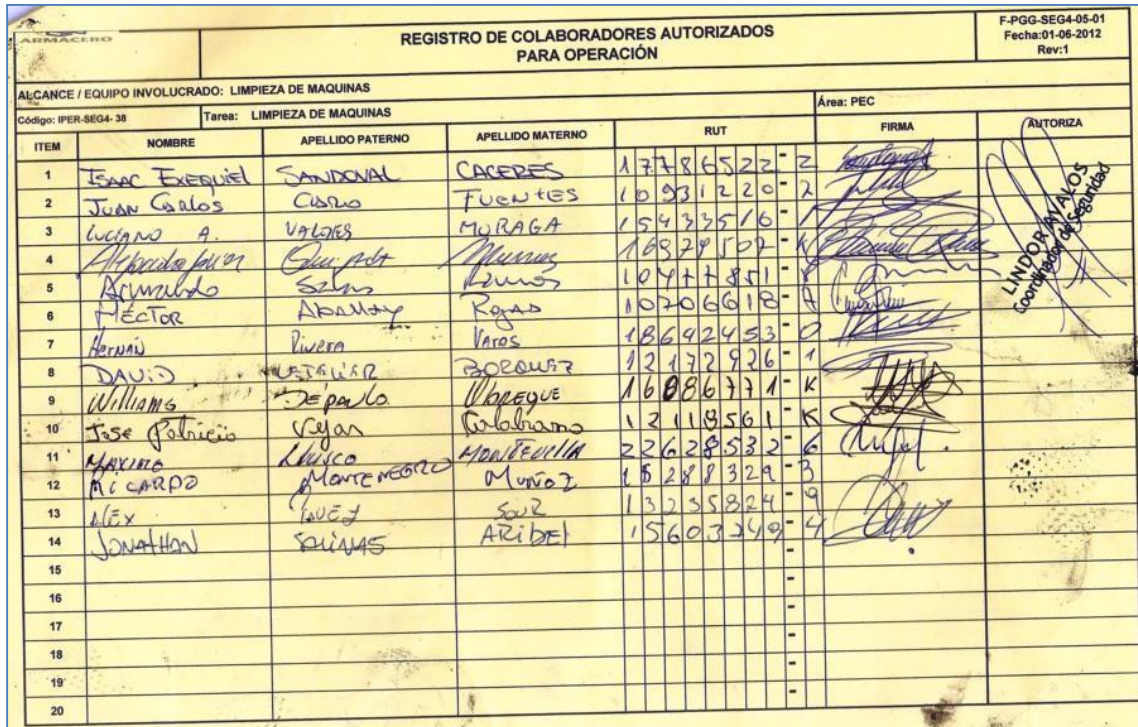 ARMACERO
REGISTRO DE COLABORADORES AUTORIZADOS
PARA OPERACIÓN
F-PGG-SEG4-05-01
Fecha:01-06-2012
Rev:1
ALCANCE / EQUIPO INVOLUCRADO: LIMPIEZA DE MAQUINAS
Código: IPER-SEG4- 38 Tarea: LIMPIEZA DE MAQUINAS Área: PEC
ITEM NOMBRE APELLIDO PATERNO APELLIDO MATERNO RUT FIRMA AUTORIZA
1 ISAAC EXEQUIEL SANDOVAL CACERES 17786522-2
2 JUAN CARLOS CLARO FUENTES 10931220-2
3 LUCIANO A. VALDRES MORAGA 15433516-
4 1697950-K
5 Armando Salas Ramos 10477851-
6 HÉCTOR ABALLAY ROJAS 10706618-
7 HERNÁN RIVERA VAROS 18642453-0
8 DAVID BORQUEZ 12172926-1
9 Williams Depaulo 16086771-K
10 Jose Patricio Vejar 1211 561-K
11 MAXIMO MONTEVILLA 22628532-6
12 RICARDO MONTENEGRO MUÑOZ 15288329-3
13 ALEX 13235824-9
14 JONATHAN SALINAS ARIDEL 15603749-4
15 -
16 -
17 -
18 -
19 -
20 -
LINDOR AYALOS
Coordinador de Seguridad